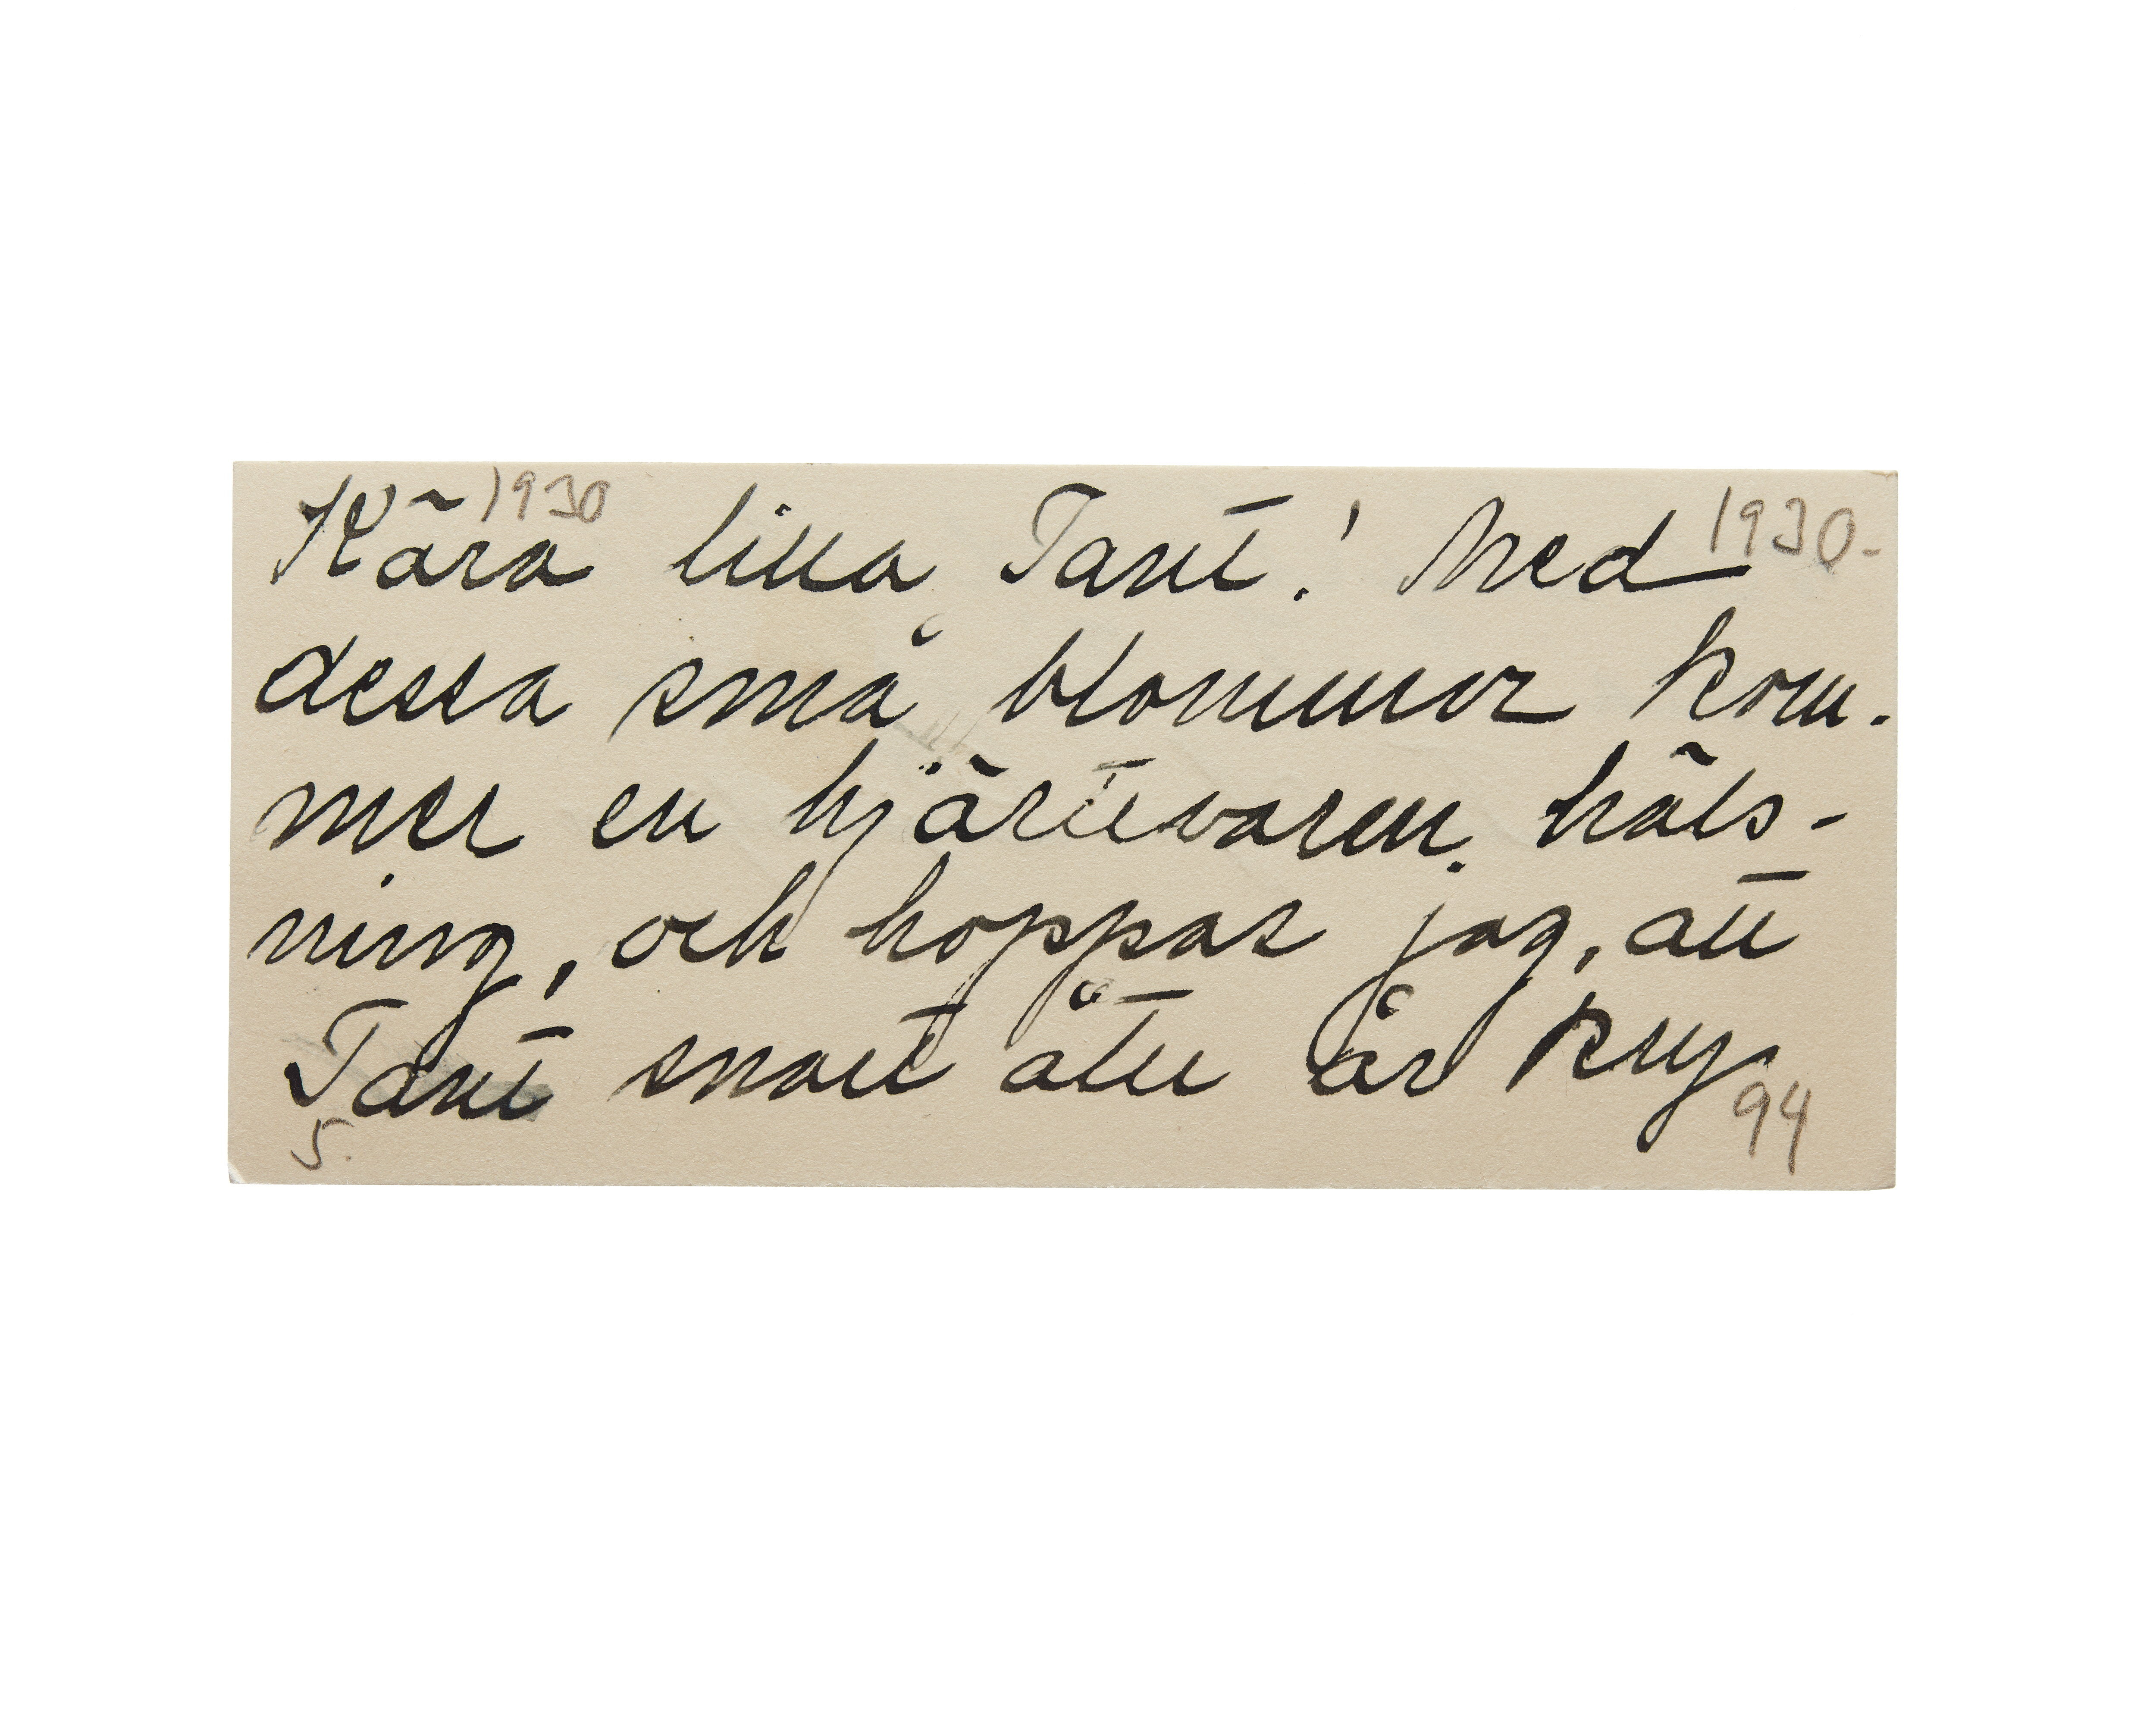 1930 1930-
Kära lilla Tant! Med
dessa små blommor kom-
mer en hjärtevarm häls-
ning, och hoppas jag, att
Tant snart åter är kry
5. 94